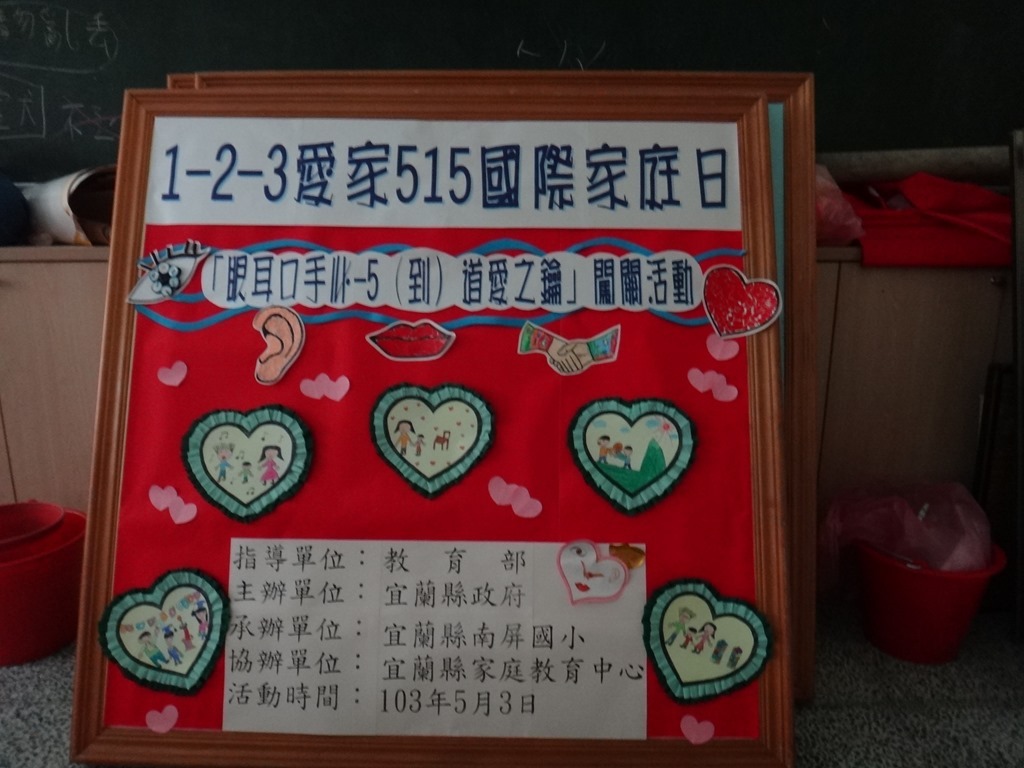 勿亂丟
1-2-3愛家515國際家庭日
「眼耳口手心-5（到）道愛之鑰」闖關活動
指導單位：教育部
主辦單位：宜蘭縣政府
承辦單位：宜蘭縣南屏國小
協辦單位：宜蘭縣家庭教育中心
活動時間：103年5月3日